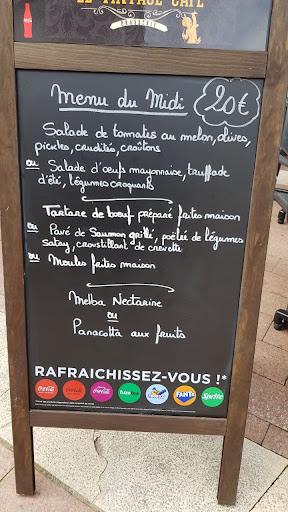 LE VINTAGE CAFÉ
Menu du Midi 20€
Salade de tomates au melon, olives,
picutes, crudités, croûtons
ou Salade d'oeufs mayonnaise, truffade
d'été, légumes croquants
Tartare de boeuf préparé frites maison
ou Pavé de Saumon grillé, poêlée de légumes
Satay, croustillant de crevette
ou Moules frites maison
Melba Nectarine
ou
Panacotta aux fruits
RAFRAICHISSEZ-VOUS !*
Coca-Cola Coca-Cola Coca-Cola fuzetea FANTA Sprite